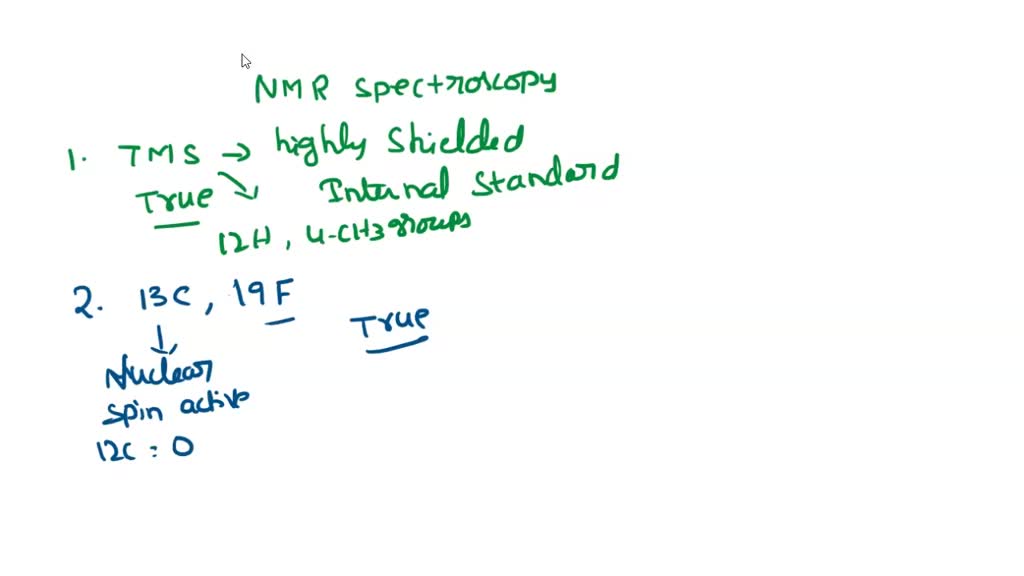 NMR spectroscopy
1. TMS → highly shielded
True ↘ Internal standard
12H, 4-CH3 groups
2. 13C, 19F
True
↓
Nuclear
spin active
12C : 0